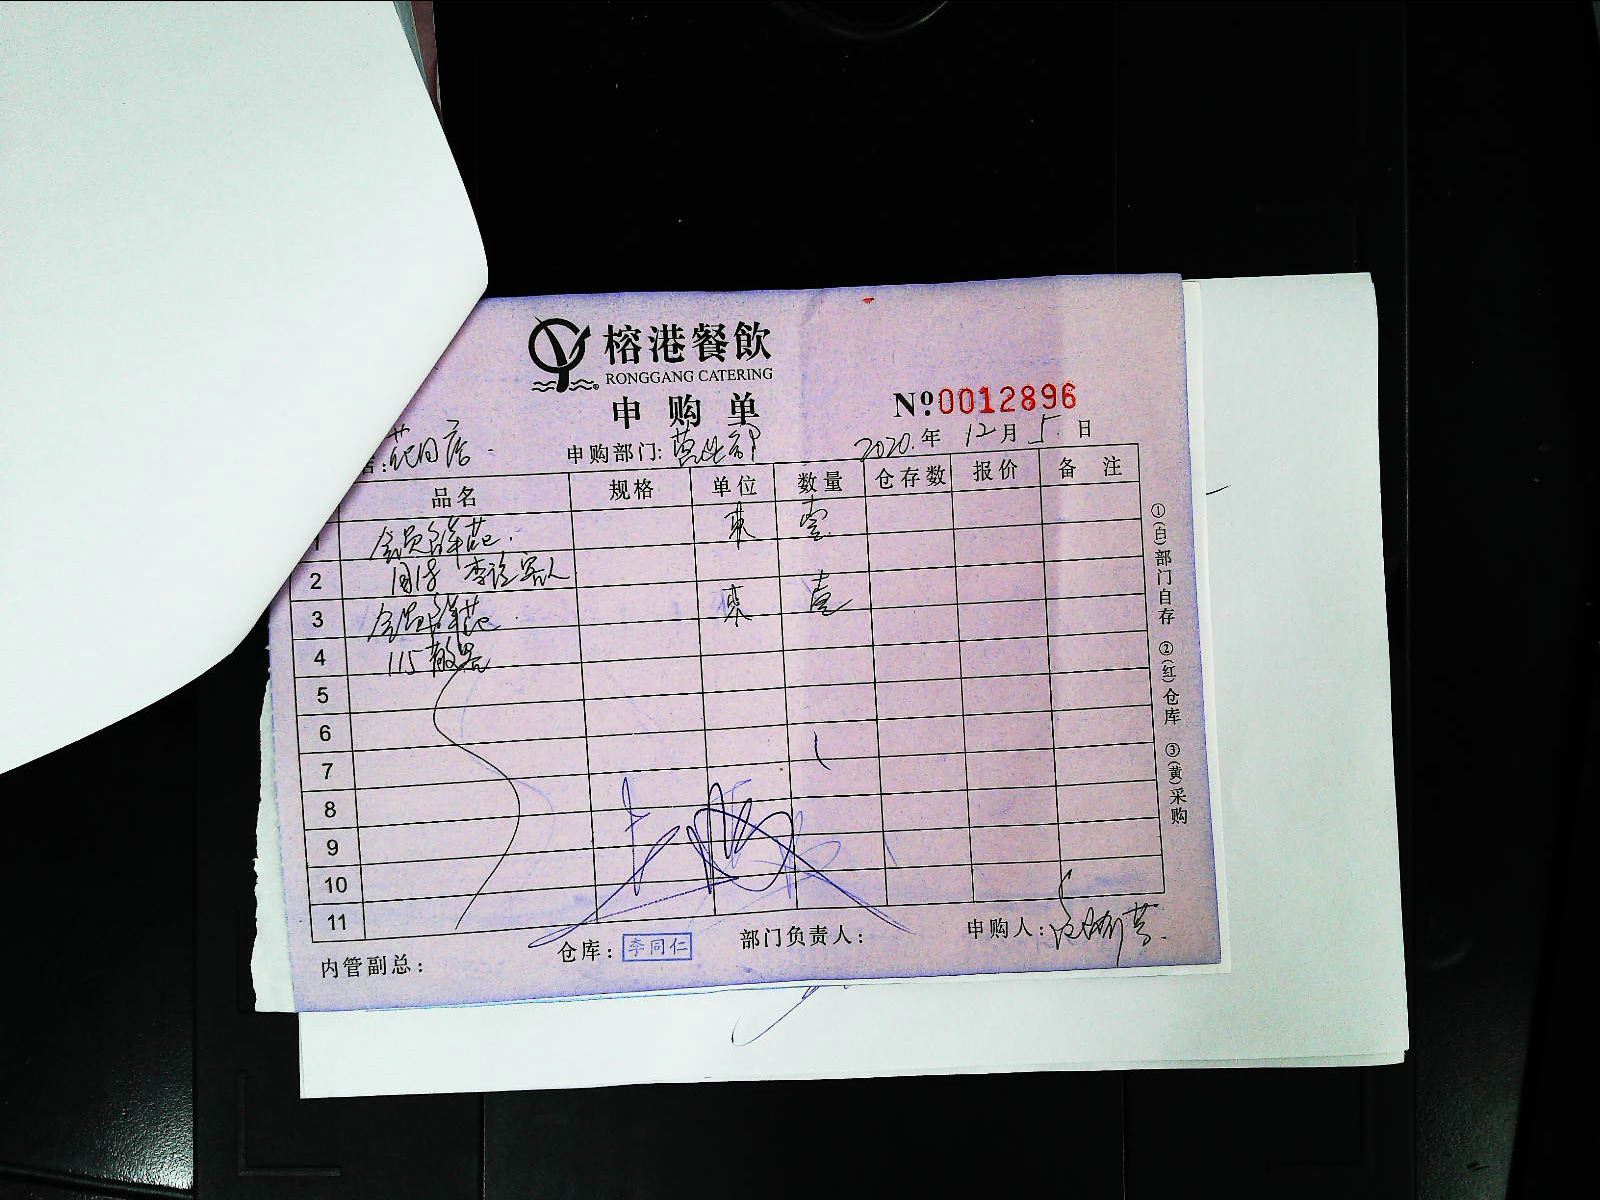 榕港餐飲
RONGGANG CATERING
申购单
№ 0012896
店: 申购部门: 营业部 2020.年 12月 5日
品名 规格 单位 数量 仓存数 报价 备注
1 会员鲜花. 束 壹
2
3 会员鲜花. 束 壹
4 115散客
5
6
7
8
9
10
11
内管副总: 仓库: 李同仁 部门负责人: 申购人:
①(白)部门自存 ②(红)仓库 ③(黄)采购